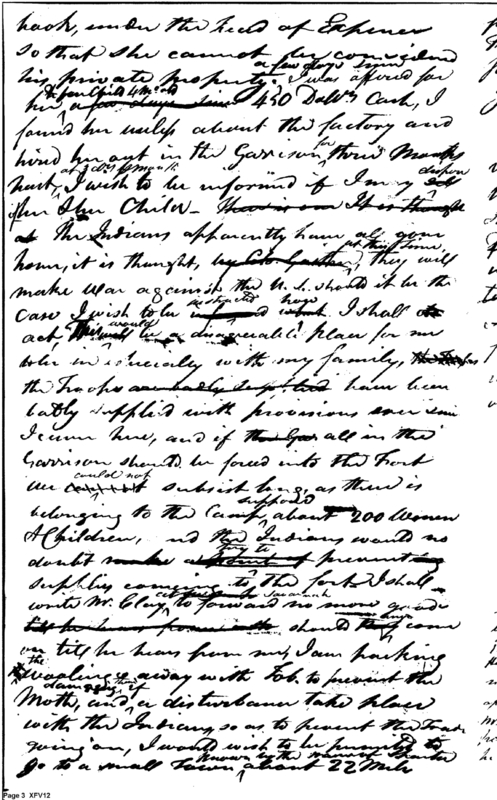 book, under the head of Expences
so that she cannot be considered
his private property. a few days since I was offered for
her & four Child 4 Mo old a few days since 450 Dollrs Cash, I
found her useless about the factory and
hired her out in the Garrison for three Months
past, at 3 dlls pr Month I wish to be informed if I may dispose
of her & her Child
The Indians apparently have all gone
home, it is thought, at this time, they will
make war against the U. S. should it be the
case I wish to be instructed how I shall
act This would be a disagreeable place for me
to be in especially with my family,
the Troops are badly supplied have been
badly supplied with provisions ever since
I came here, and if all in the
Garrison should be forced into the Fort
we could not subsist long, as there is
belonging to the Camp, supposd about 200 Women
& Children, and the Indians would no
doubt try to prevent
supplies coming to the fort I shall
write Mr. Clay, Savannah to forward no more goods
should they come
on till he hears from me, I am packing
the woolings away with Tob. to prevent the
Moth, damaging them and if a disturbance take place
with the Indians, so as to prevent the Trade
going on, I would wish to be permitted to
go to a small Town known by the name of about 22 Miles
Page 3 XFV12